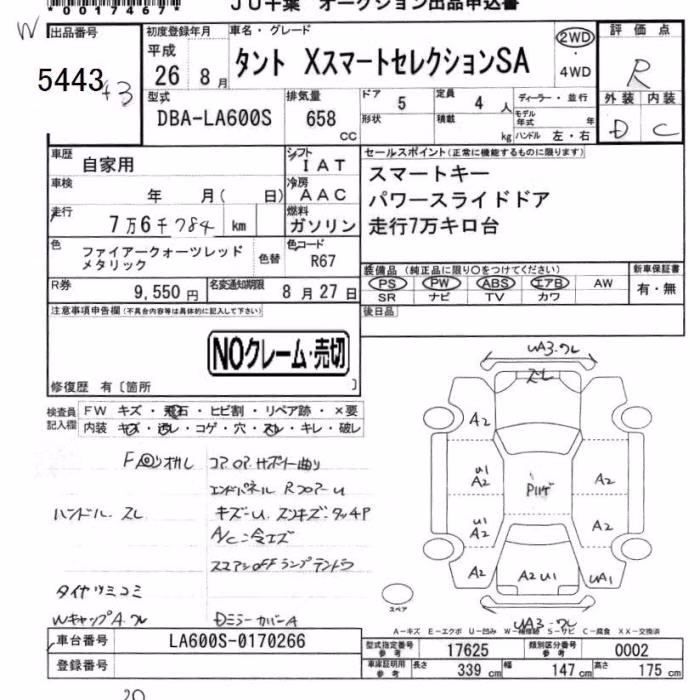 *00174767*
JU千葉 オークション出品申込書
W
出品番号
5443
初度登録年月
平成
26 8月
車名・グレード
タント XスマートセレクションSA
2WD
・
4WD
評価点
R
型式
DBA-LA600S
排気量
658 cc
ドア 5
定員 4 人
ディーラー・並行
形状
積載 kg
モデル年式 年
ハンドル 左・右
外装 内装
D C
車歴
自家用
シフト
I AT
セールスポイント(正常に機能するものに限ります)
スマートキー
パワースライドドア
走行7万キロ台
車検
年 月( 日)
冷房
A AC
走行
7万6千784 km
燃料
ガソリン
色
ファイアークォーツレッド
メタリック
色替
色コード
R67
装備品(純正品に限り○をつけてください)
PS PW ABS エアB AW
SR ナビ TV カワ
新車保証書
有・無
R券
9,550円
名変通知期限
8月27日
後日品
注意事項申告欄(不具合内容等は具体的に記入して下さい)
NOクレーム・売切
修復歴 有〔箇所 〕
検査員
記入欄
FW キズ・飛石・ヒビ割・リペア跡・×要
内装 キズ・汚レ・コゲ・穴・スレ・キレ・破レ
コアロアサポート曲り
エンドパネル RフロアーU
ハンドル スレ
キズ・U
A/C
タイヤツミコミ
WキャップA ワレ
DミラーカバーA
UA3.ワレ
スレ
A2
U1
A2
A2
U1
A2
A2
A2
A2U1
UA1
UA3.ワレ
スペア
A-キズ E-エクボ U-凹み W-補修跡 S-サビ C-腐食 XX-交換済
車台番号
LA600S-0170266
登録番号
型式指定番号
参考
17625
類別区分番号
参考
0002
車庫証明用
参考
長さ 339 cm
幅 147 cm
高さ 175 cm
20